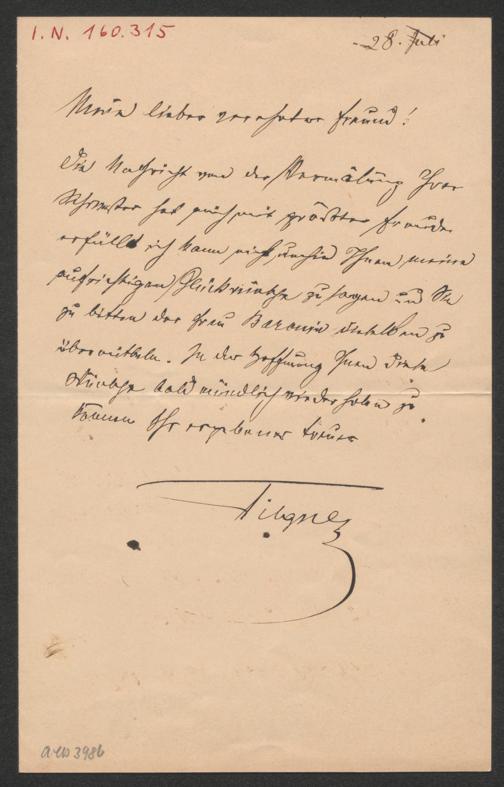 I. N. 160.315
28. Juli
Mein lieber verehrter Freund!
Die Nachricht von der Vermälung Ihrer
Schwester hat mich mit größter Freude
erfüllt ich kann nicht umhin Ihnen meine
aufrichtigen Glückwünsche zu sagen und Sie
zu bitten der Frau Baronin dieselben zu
übermitteln. In der Hoffnung Ihnen diese
Wünsche bald mündlich wiederholen zu
können Ihr ergebener treuer
Tilgner